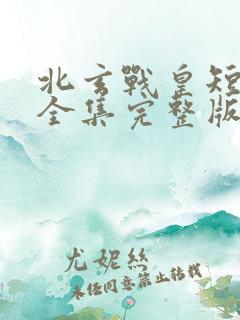 北玄戰皇短
全集完整版
尤妮絲
未経同意禁止轉載